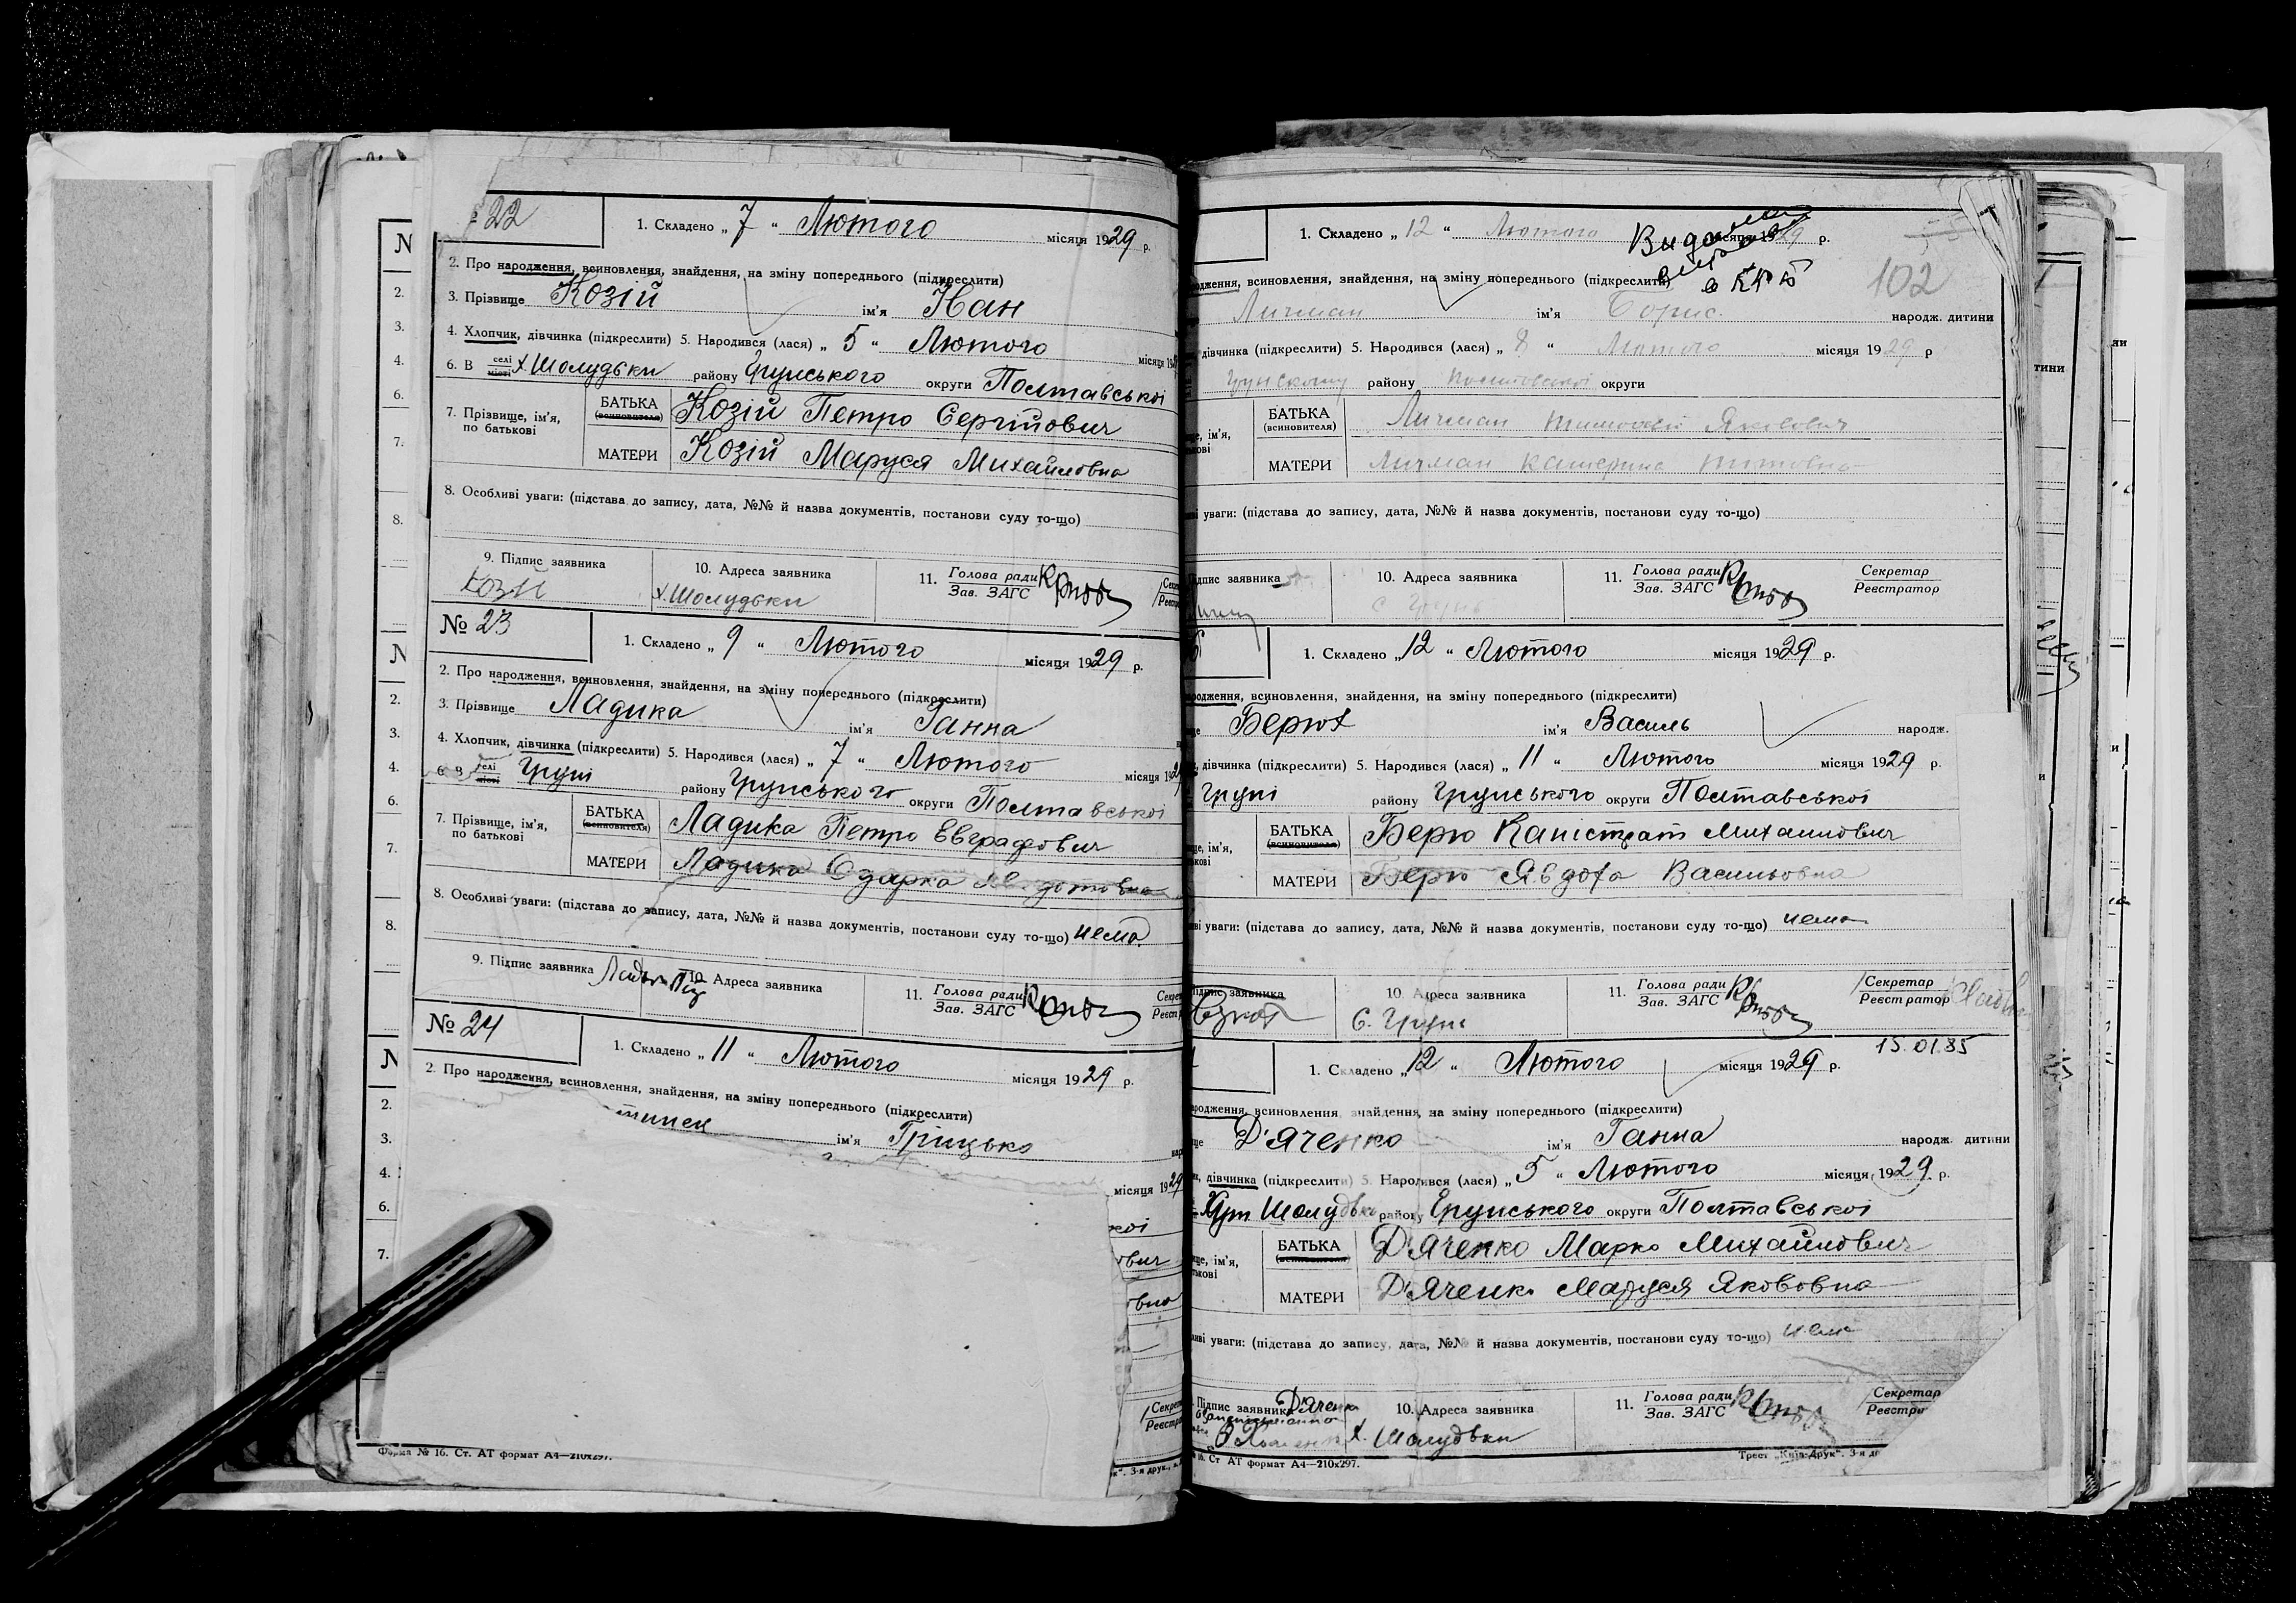 22
1. Складено „ 7 “ Лютого місяця 1929 р.
2. Про народження, всиновлення, знайдення, на зміну попереднього (підкреслити)
3. Прізвище Козій ім'я Іван
4. Хлопчик, дівчинка (підкреслити) 5. Народився (лася) „ 5 “ Лютого місяця 19
6. В селі місті х Шолудьки району Грунського округи Полтавської
7. Прізвище, ім'я, по батькові
БАТЬКА (всиновителя) Козій Петро Сергійович
МАТЕРИ Козій Маруся Михайловна
8. Особливі уваги: (підстава до запису, дата, №№ й назва документів, постанови суду то-що)
9. Підпис заявника Козій
10. Адреса заявника х. Шолудьки
11. Голова ради Зав. ЗАГС
№ 23
1. Складено „ 9 “ Лютого місяця 1929 р.
2. Про народження, всиновлення, знайдення, на зміну попереднього (підкреслити)
3. Прізвище Ладика ім'я Ганна
4. Хлопчик, дівчинка (підкреслити) 5. Народився (лася) „ 7 “ Лютого місяця 192
6. В селі місті Груні району Грунського округи Полтавської
7. Прізвище, ім'я, по батькові
БАТЬКА (всиновителя) Ладика Петро Евграфович
МАТЕРИ Ладика Одарка
8. Особливі уваги: (підстава до запису, дата, №№ й назва документів, постанови суду то-що) нема
9. Підпис заявника
10. Адреса заявника
11. Голова ради Зав. ЗАГС
№ 24
1. Складено „ 11 “ Лютого місяця 1929 р.
2. Про народження, всиновлення, знайдення, на зміну попереднього (підкреслити)
ім'я Грицько
місяця 1929
Форма № 16. Ст. АТ формат А4—210х297.
1. Складено „ 12 “ Лютого місяця 1929 р.
Видано
102
народження, всиновлення, знайдення, на зміну попереднього (підкреслити)
Личман ім'я Борис народж. дитини
дівчинка (підкреслити) 5. Народився (лася) „ 8 “ Лютого місяця 1929 р
Грунскому району Полтавської округи
БАТЬКА (всиновителя) Личман Тимофей Яковович
МАТЕРИ Личман Катерина Титовна
уваги: (підстава до запису, дата, №№ й назва документів, постанови суду то-що)
Підпис заявника
10. Адреса заявника с Грунь
11. Голова ради Зав. ЗАГС
Секретар Реєстратор
1. Складено „ 12 “ Лютого місяця 1929 р.
народження, всиновлення, знайдення, на зміну попереднього (підкреслити)
Берюх ім'я Василь народж.
дівчинка (підкреслити) 5. Народився (лася) „ 11 “ Лютого місяця 1929 р.
Груні району Грунського округи Полтавської
БАТЬКА (всиновителя) Берю Каністрат Михаилович
МАТЕРИ Берю Явдоха Васильовна
уваги: (підстава до запису, дата, №№ й назва документів, постанови суду то-що) нема
Підпис заявника
10. Адреса заявника С. Грунь
11. Голова ради Зав. ЗАГС
Секретар Реєстратор
15.01.85
1. Складено „ 12 “ Лютого місяця 1929 р.
народження, всиновлення, знайдення, на зміну попереднього (підкреслити)
Д'яченко ім'я Ганна народж. дитини
дівчинка (підкреслити) 5. Народився (лася) „ 5 “ Лютого місяця 1929 р.
Шолудьки району Грунського округи Полтавської
БАТЬКА (всиновителя) Д'яченко Марко Михайлович
МАТЕРИ Д'яченко Маруся Яковвна
уваги: (підстава до запису, дата, №№ й назва документів, постанови суду то-що) нема
Підпис заявника Д'яченко
10. Адреса заявника х. Шолудьки
11. Голова ради Зав. ЗАГС
Секретар
16. Ст АТ формат А4—210х297.
Трест „Київ-Друк“. 3-я